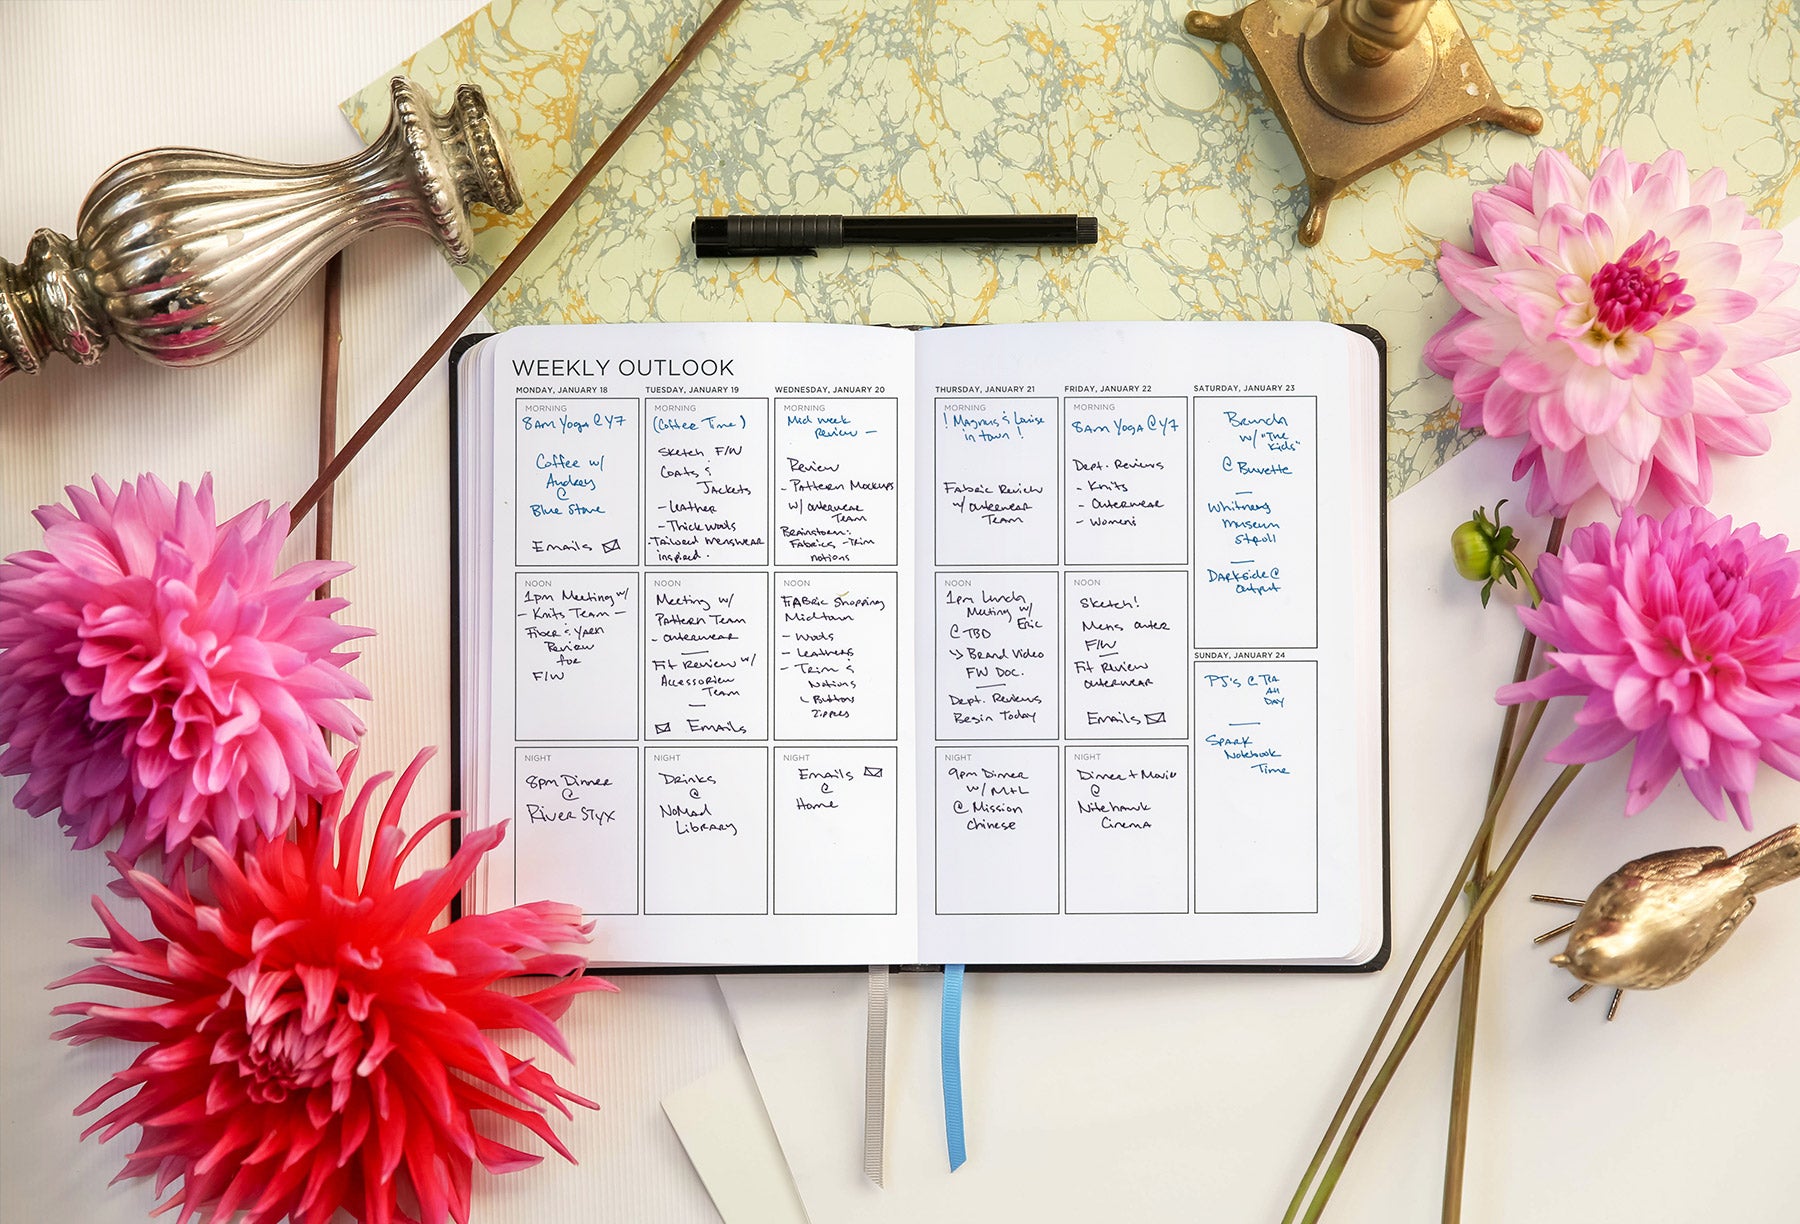 WEEKLY OUTLOOK
MONDAY, JANUARY 18
MORNING
8am Yoga @ Y7
Coffee w/
Audrey
@
Blue Stone
Emails
NOON
1pm Meeting w/
- Knits Team -
Fiber & Yarn
Review
for
F/W
NIGHT
8pm Dinner
@
River Styx
TUESDAY, JANUARY 19
MORNING
(Coffee Time)
Sketch F/W
Coats &
Jackets
- Leather
- Thick wools
- Tailored menswear
inspired.
NOON
Meeting w/
Pattern Team
- outerwear
Fit Review w/
Accessories
Team
Emails
NIGHT
Drinks
@
NoMad
Library
WEDNESDAY, JANUARY 20
MORNING
Mid week
Review -
Review
- Pattern Mockups
w/ outerwear
Team
Brainstorm:
Fabrics - Trim
notions
NOON
Fabric Shopping
Midtown
- Wools
- Leathers
- Trim &
Notions
Buttons
Zippers
NIGHT
Emails
@
Home
THURSDAY, JANUARY 21
MORNING
! Magnus & Louise
in town !
Fabric Review
w/ outerwear
Team
NOON
1pm Lunch
Meeting w/
Eric
@ TBD
>> Brand Video
FW Doc.
Dept. Reviews
Begin Today
NIGHT
9pm Dinner
w/ M+L
@ Mission
Chinese
FRIDAY, JANUARY 22
MORNING
8am Yoga @ Y7
Dept. Reviews
- Knits
- Outerwear
- Womens
NOON
Sketch!
Mens outer
F/W
Fit Review
outerwear
Emails
NIGHT
Dinner + Movie
@
Nitehawk
Cinema
SATURDAY, JANUARY 23
Brunch
w/ "The
Kids"
@ Buvette
Whitney
museum
stroll
Darkside @
Output
SUNDAY, JANUARY 24
PJ's & Tea
All
DAY
Spark
Notebook
Time